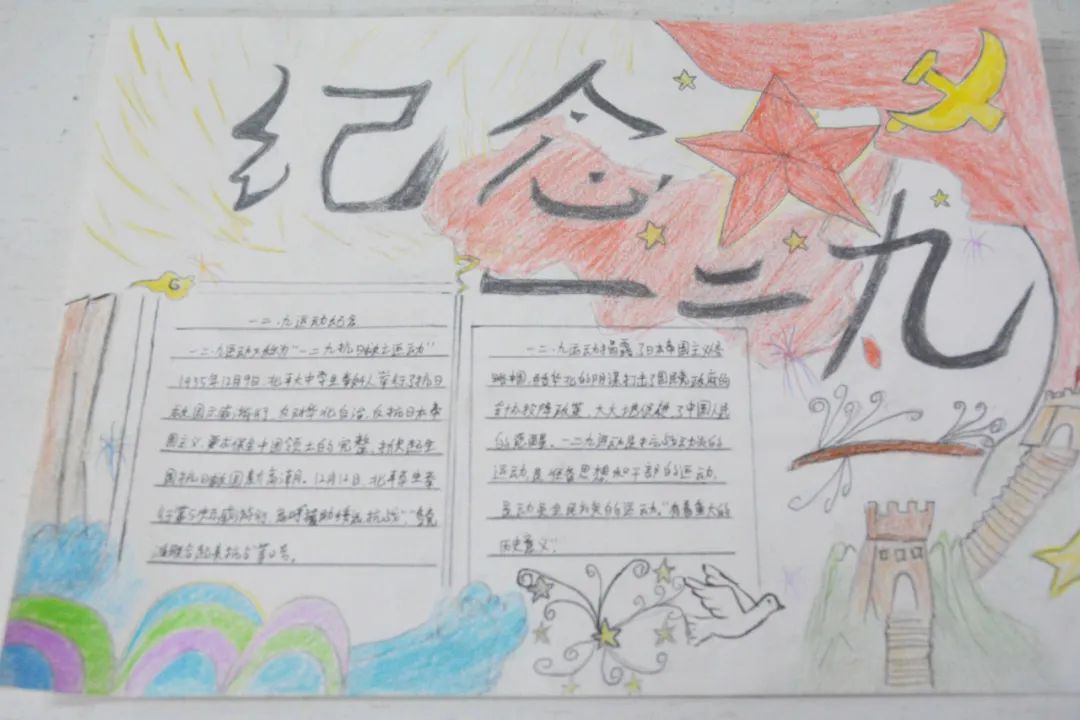 纪念
一二九
一二.九运动纪念
一二.九运动又称为"一二九抗日救亡运动"
1935年12月9日,北平大中学生数千人举行了抗日
救国示威游行,反对华北自治,反抗日本帝
国主义,要求保全中国领土的完整,掀起全
国抗日救国新高潮。12月12日,北平学生举
行第5次示威游行,
一二.九运动揭露了日本帝国主义侵
略中国,吞并华北的阴谋,打击了国民党政府的
妥协投降政策,大大地促进了中国人民
的觉醒。一二九运动是
运动,是准备思想和干部的运动,
是动员全民族的运动,"有着重大的
历史意义"。